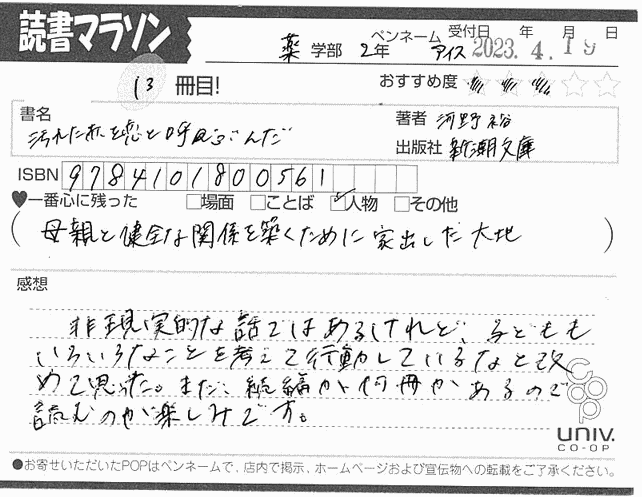 読書マラソン
薬 学部 2年 ペンネーム アイス 受付日 年 月 日
2023.4.19
13 冊目! おすすめ度
書名 著者 河野裕
汚れた赤を恋と呼ぶんだ 出版社 新潮文庫
ISBN 9784101800561
♥一番心に残った □場面 □ことば ☑人物 □その他
(母親と健全な関係を築くために家出した大地)
感想
非現実的な話ではあるけれど、子どもも
いろいろなことを考えて行動しているなと改
めて思った。まだ、続編が何冊かあるので
読むのが楽しみです。
UNIV.
CO-OP
●お寄せいただいたPOPはペンネームで、店内で掲示、ホームページおよび宣伝物への転載をご了承ください。